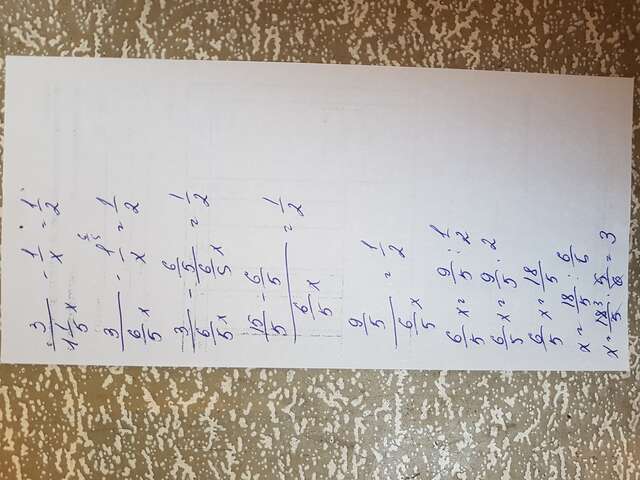 3/(1 1/5 x) - 1/x = 1/2
3/(6/5 x) - 1/x = 1/2
3/(6/5 x) - (6/5)/(6/5 x) = 1/2
(15/5 - 6/5)/(6/5 x) = 1/2
(9/5)/(6/5 x) = 1/2
6/5 x = 9/5 : 1/2
6/5 x = 9/5 · 2
6/5 x = 18/5
x = 18/5 : 6/5
x = 18/5 · 5/6 = 3